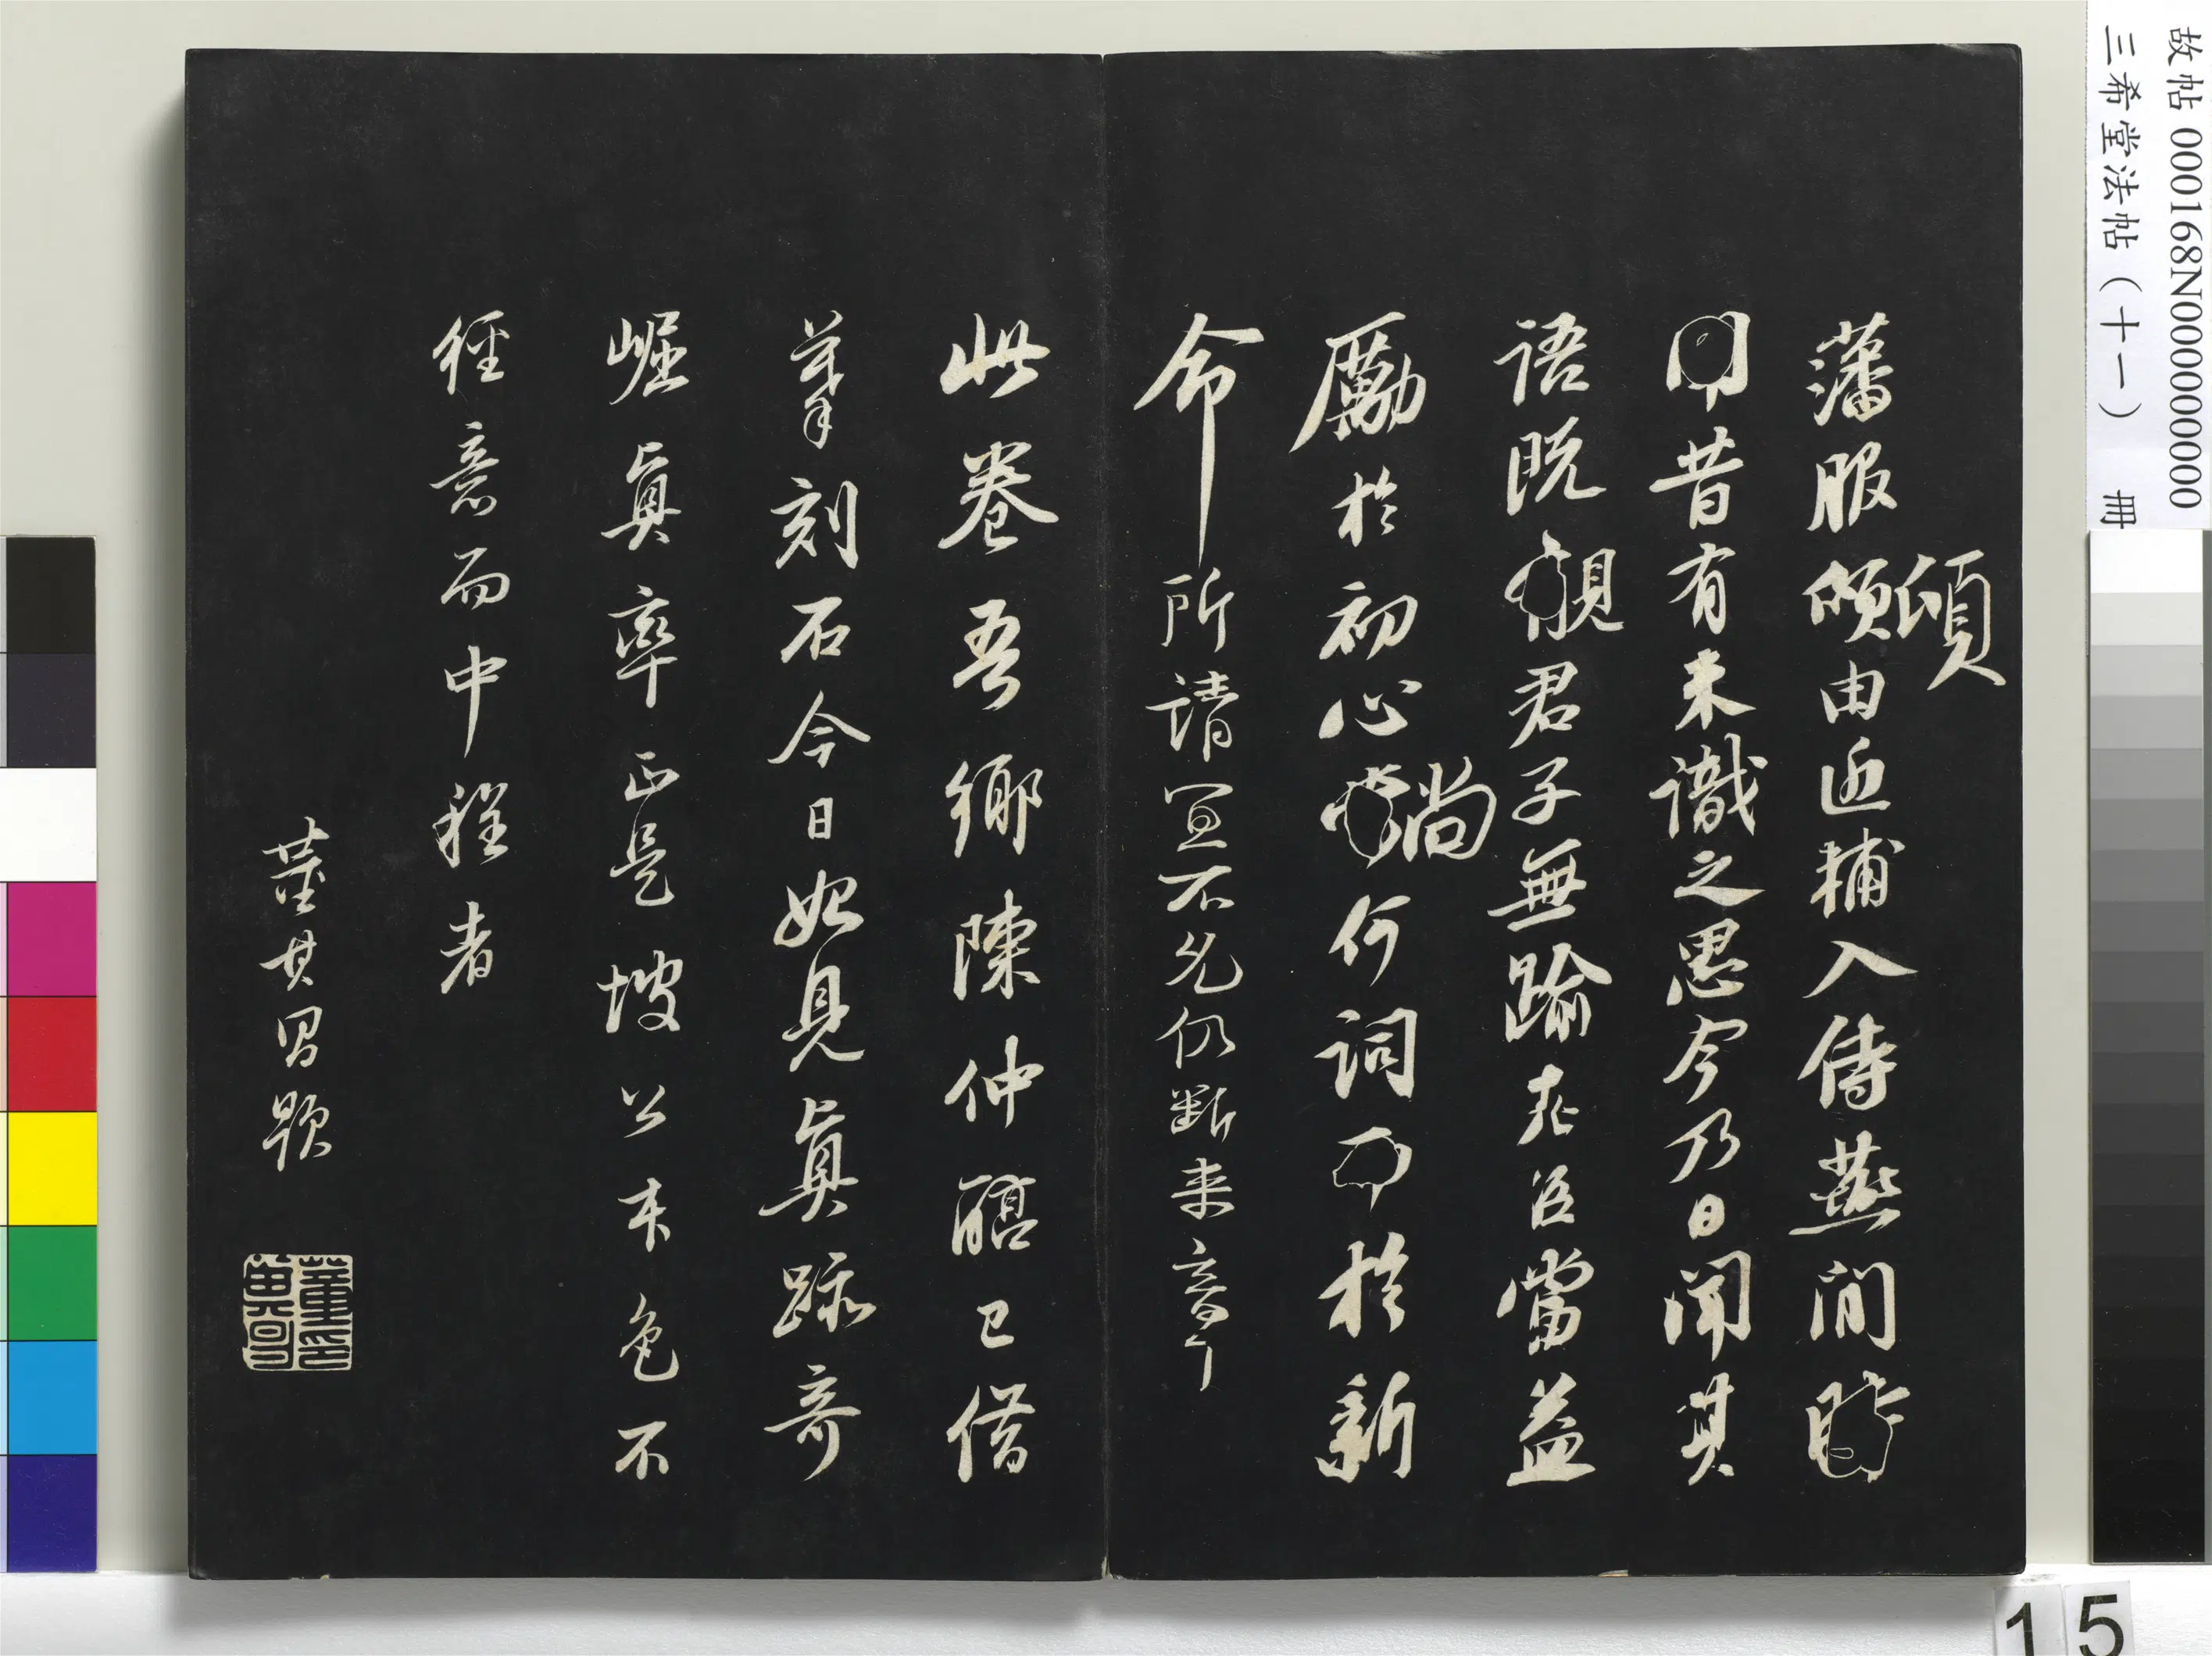 故帖 000168N000000000
三希堂法帖（十一） 冊
頃
藩服頃由近輔入侍燕閒時
昔有未識之思今乃日聞其
語既覿君子無踰老臣當益
尚
勵於初心何詞於新
命所請宜不允仍斷来章
此卷吾鄉陳仲醕已借
摹刻石今日始見真蹟奇
崛真率正是坡公本色不
經意而中程者
董其昌題
15